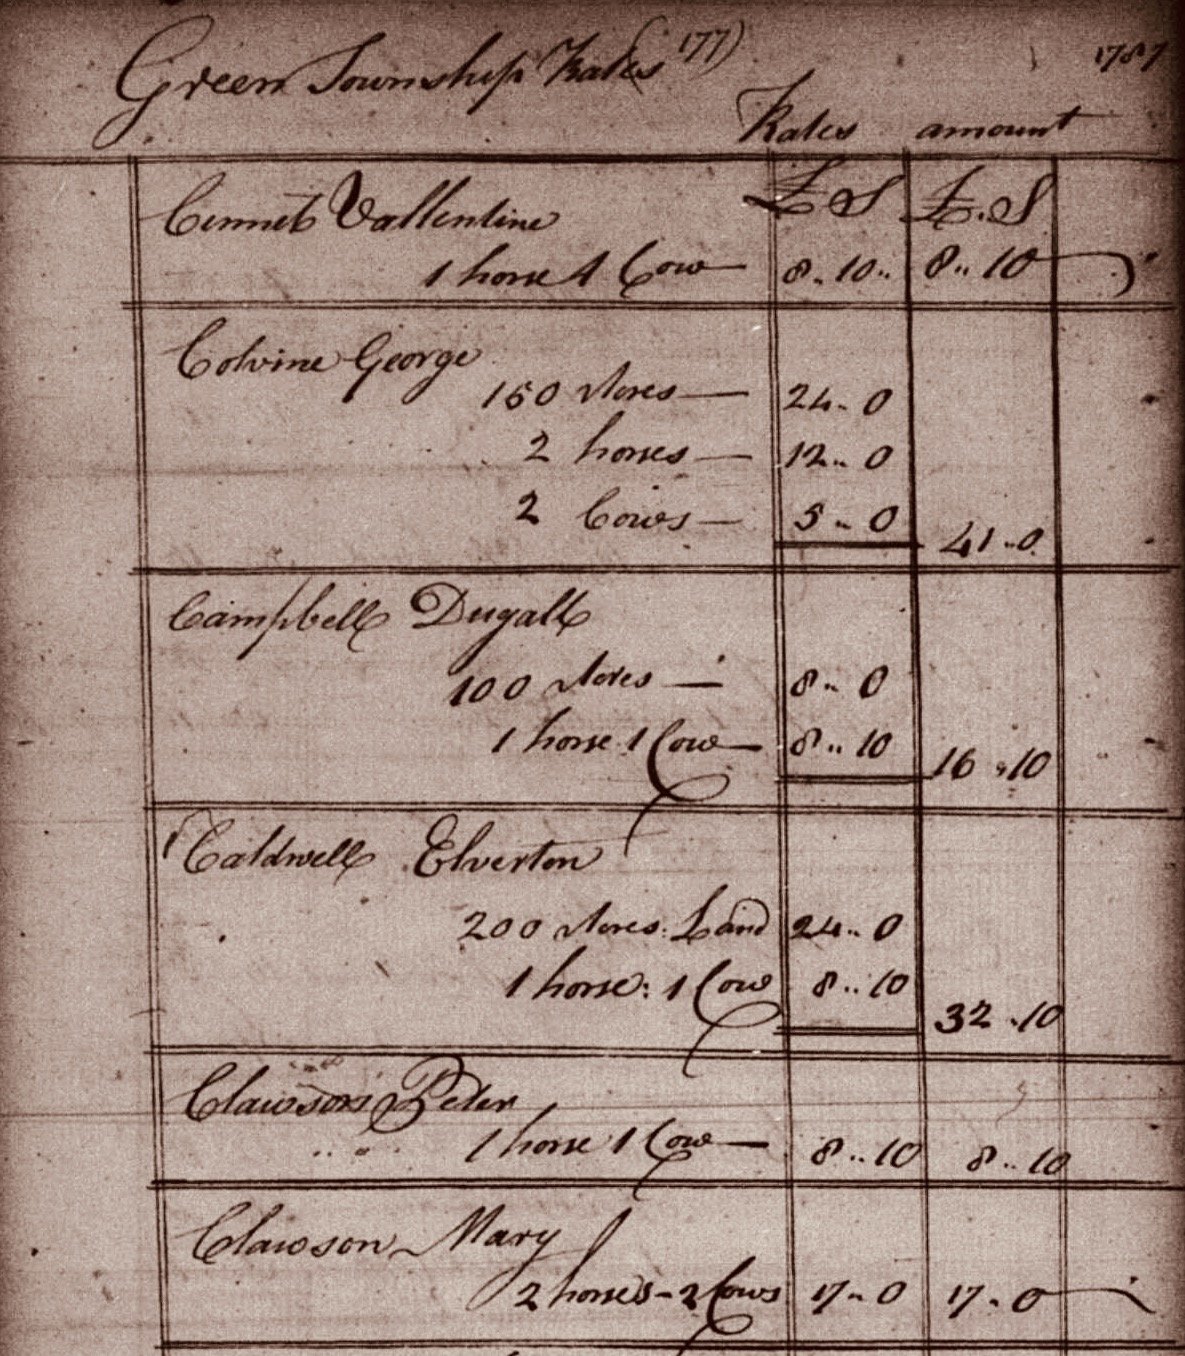 Green Township Rates 177) 1787
Rates amount
£ S £. S
Cennet Vallentine
1 horse 1 Cow — 8.. 10.. 8.. 10
Colvine George
150 Acres — 24.. 0
2 horses — 12.. 0
2 Cows — 5.. 0 41.. 0
Campbell Dugall
100 Acres — 8.. 0
1 horse 1 Cow — 8.. 10 16.. 10
Caldwell Elverton
200 Acres: Land 24.. 0
1 horse: 1 Cow 8.. 10 32.. 10
Clawson Peter
1 horse 1 Cow — 8.. 10 8.. 10
Clawson Mary
2 horses - 2 Cows 17.. 0 17.. 0